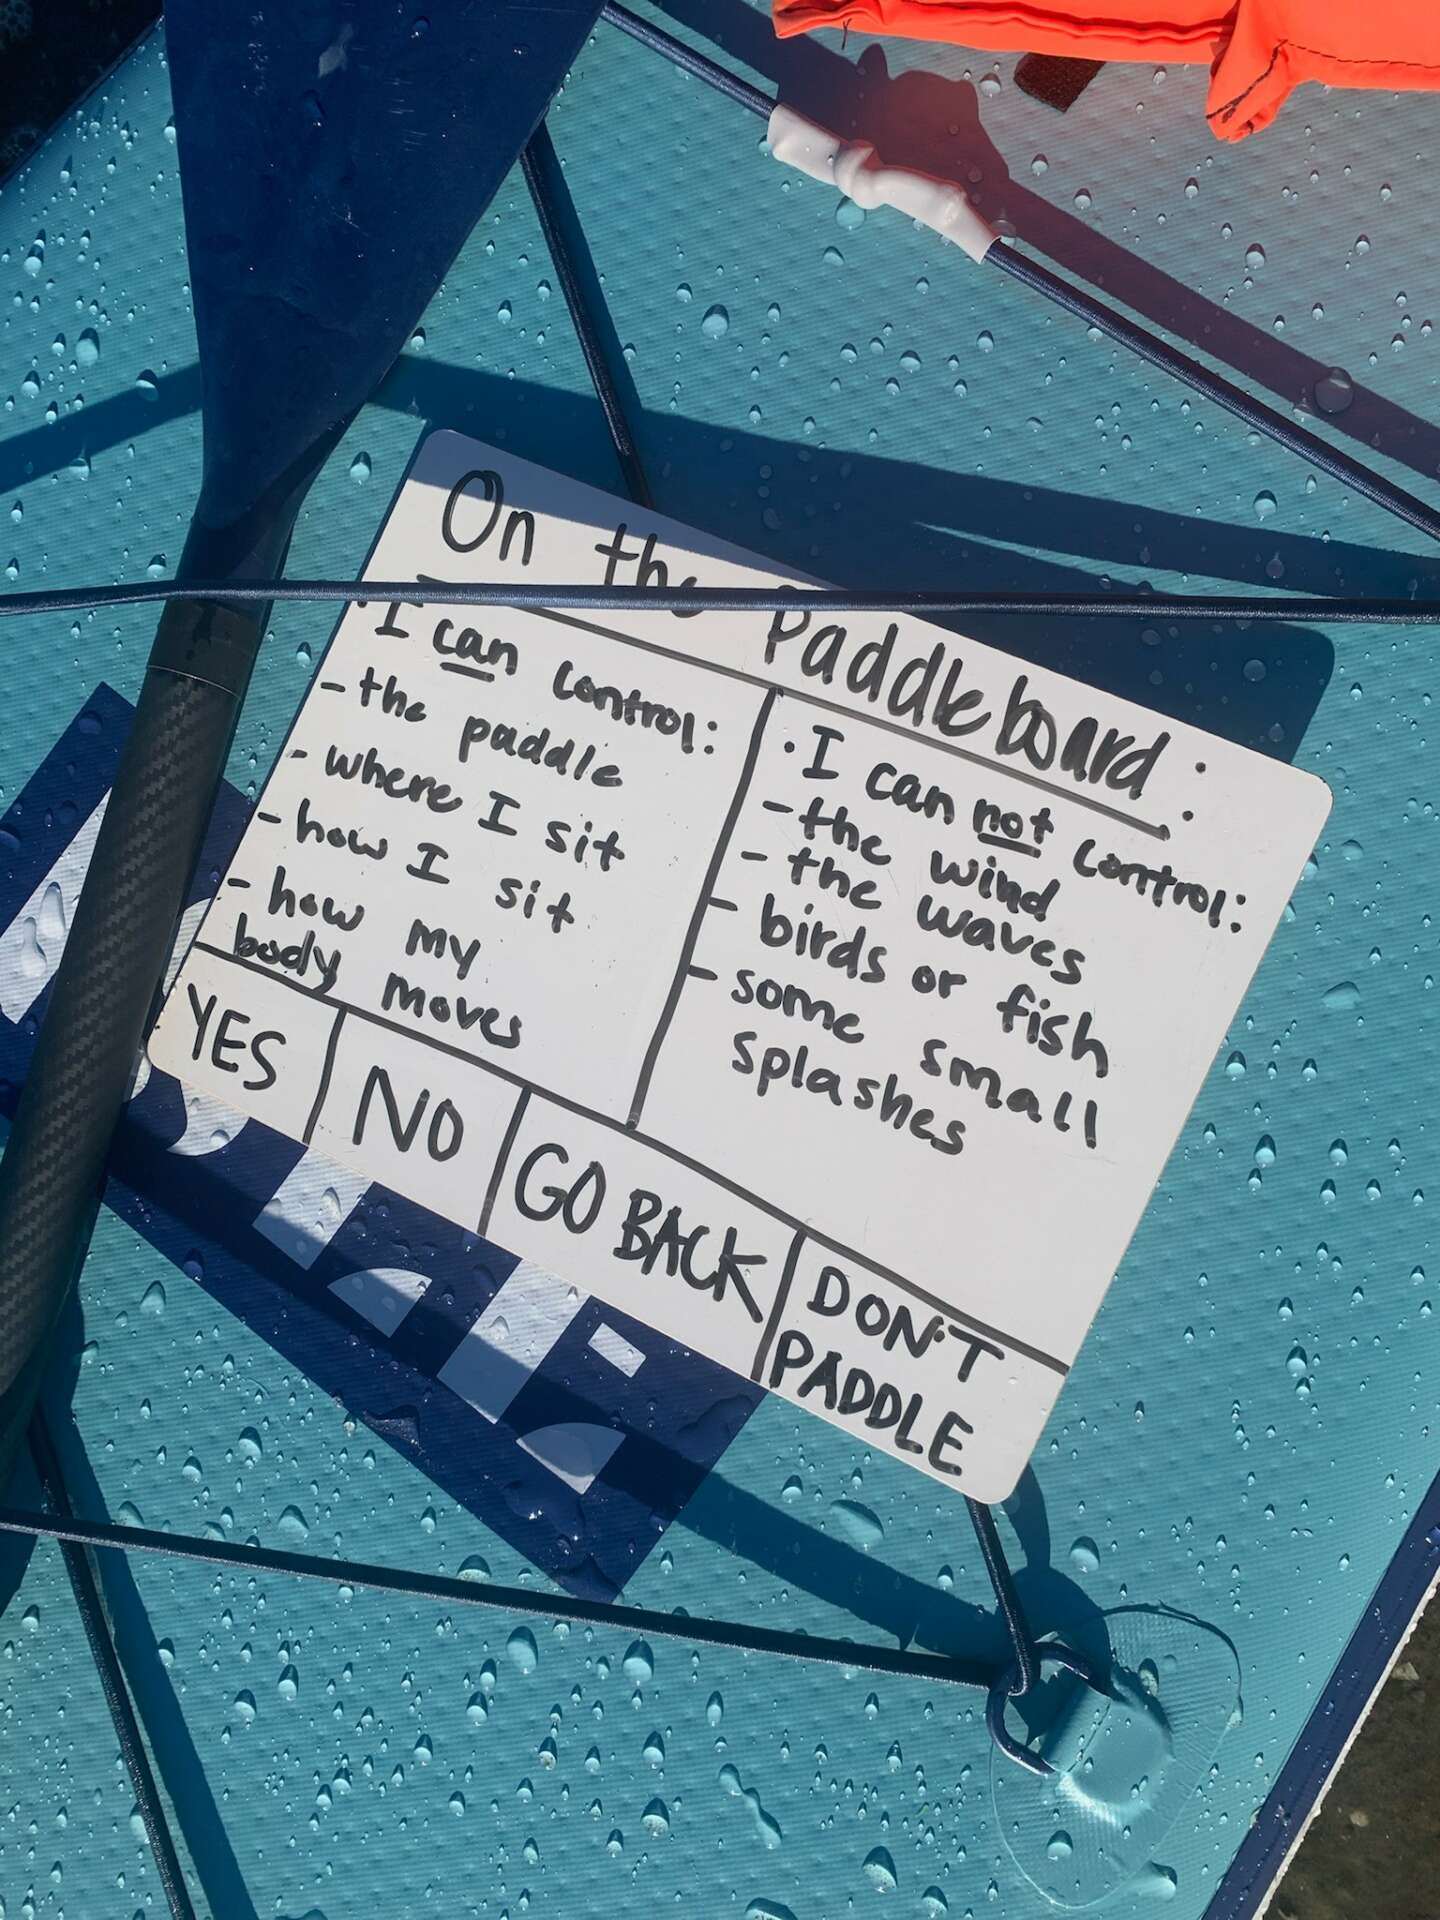 On the Paddleboard:
• I can control:
- the paddle
- where I sit
- how I sit
- how my
body moves
• I can not control:
- the wind
- the waves
- birds or fish
- some small
splashes
YES
NO
GO BACK
DON'T
PADDLE